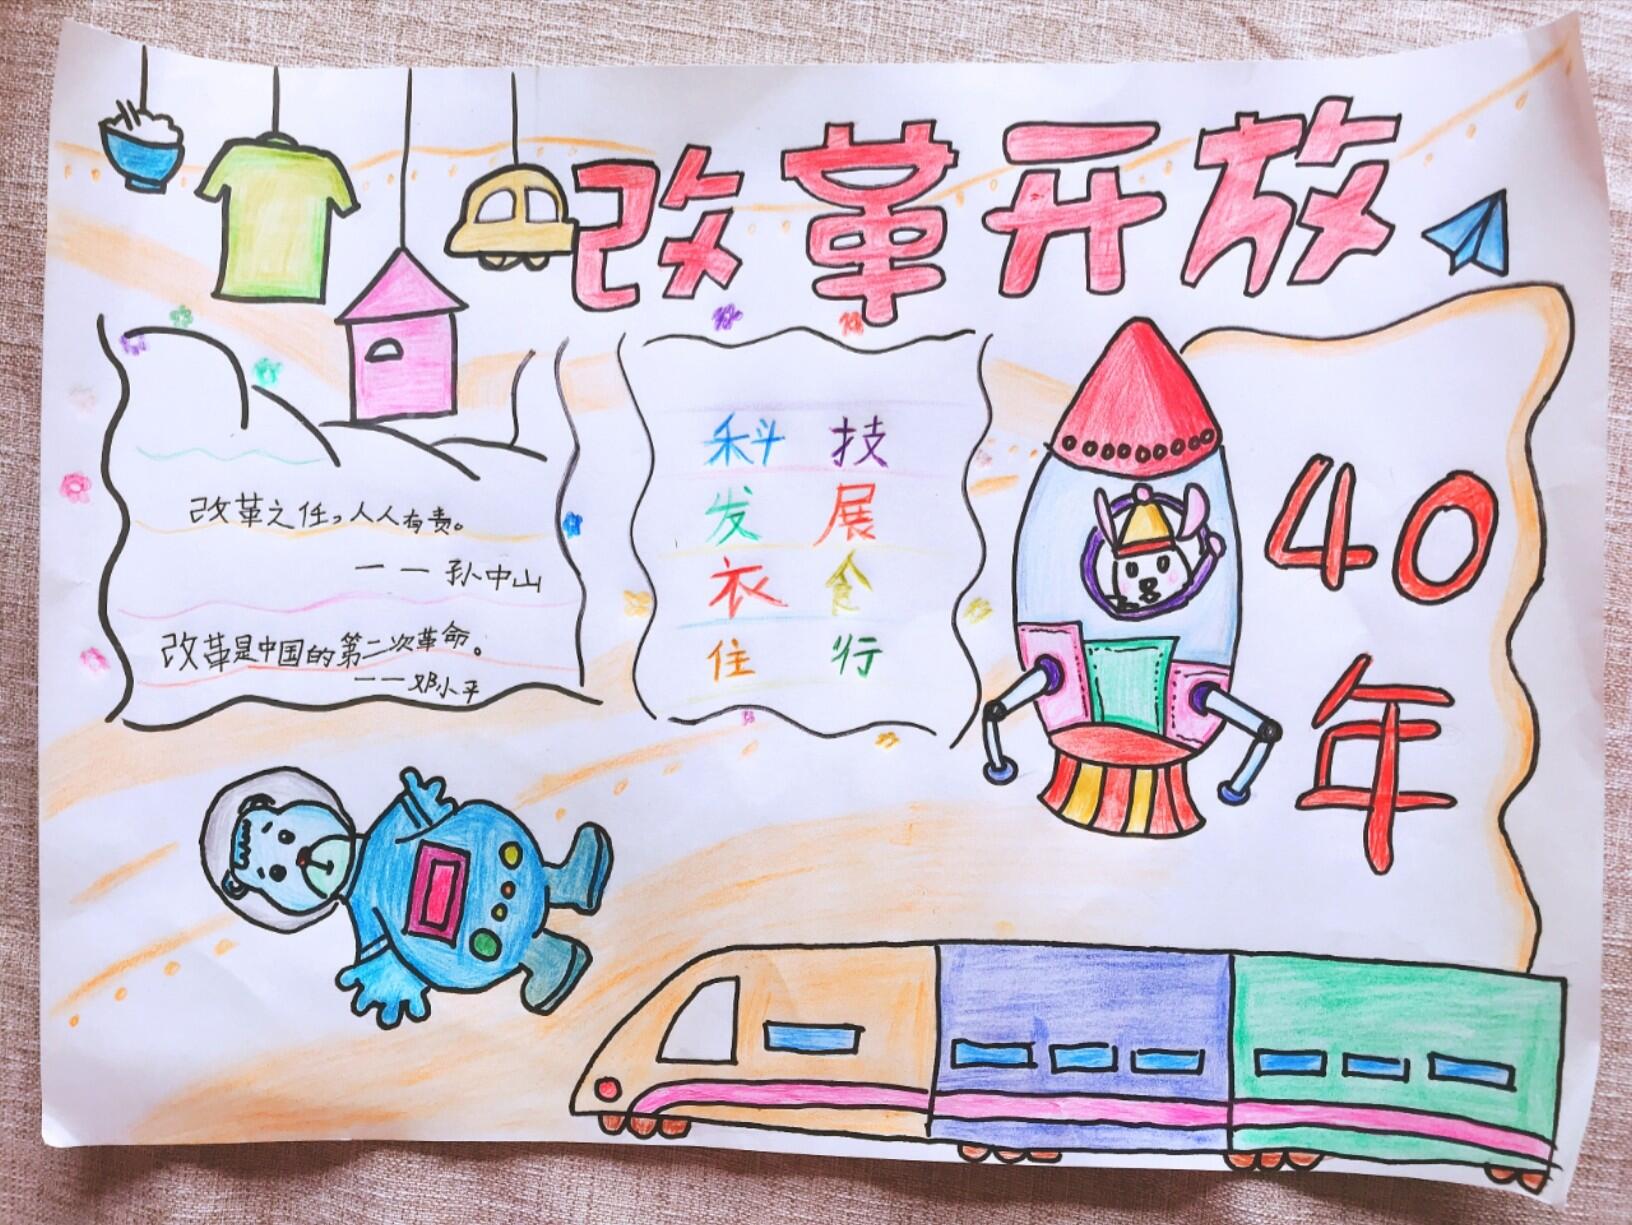 改革开放
改革之任，人人有责。
——孙中山
改革是中国的第二次革命。
——邓小平
科技
发展
衣食
住行
40
年